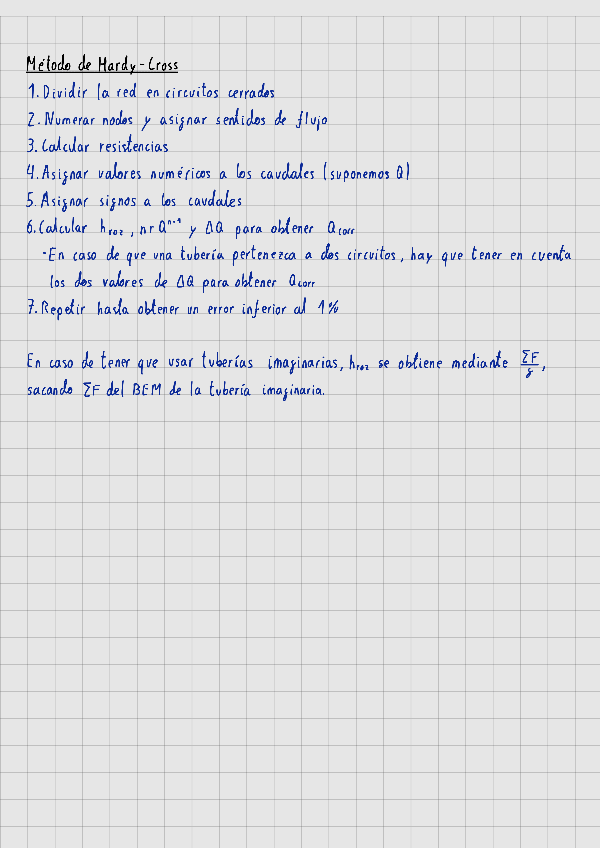 Método de Hardy-Cross
1. Dividir la red en circuitos cerrados
2. Numerar nodos y asignar sentidos de flujo
3. Calcular resistencias
4. Asignar valores numéricos a los caudales (suponemos Q)
5. Asignar signos a los caudales
6. Calcular h_roz, nrQ^n-1 y ΔQ para obtener Q_corr
·En caso de que una tubería pertenezca a dos circuitos, hay que tener en cuenta
los dos valores de ΔQ para obtener Q_corr
7. Repetir hasta obtener un error inferior al 1%
En caso de tener que usar tuberías imaginarias, h_roz se obtiene mediante ΣF/g,
sacando ΣF del BEM de la tubería imaginaria.